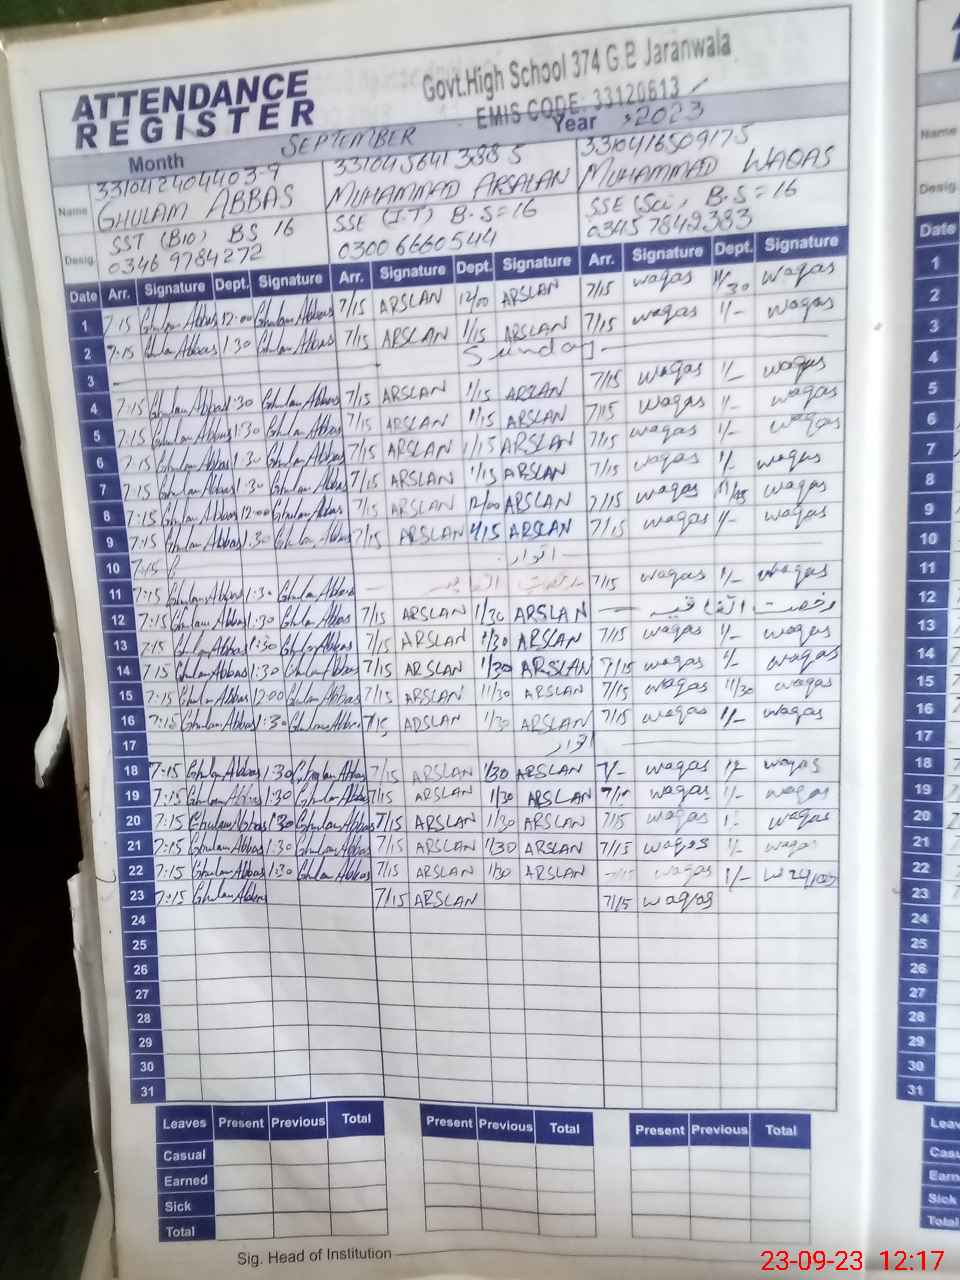 Govt.High School 374 G.B Jaranwala
EMIS CODE: 33120613
ATTENDANCE
REGISTER
Month SEPTEMBER Year 2023
Name
GHULAM ABBAS MUHAMMAD ARSALAN MUHAMMAD WAQAS
Desig. SST (Bio) BS 16 SSE (I.T) B.S=16 SSE (Sci) B.S=16
0346 9784272 0300 6660544 03457842383
Date Arr. Signature Dept. Signature Arr. Signature Dept. Signature Arr. Signature Dept. Signature
1 7:15 Ghulam Abbas 12:00 Ghulam Abbas 7/15 ARSLAN 12/00 ARSLAN 7/15 waqas 11/30 waqas
2 7:15 Ghulam Abbas 1:30 Ghulam Abbas 7/15 ARSLAN 1/15 ARSLAN 7/15 waqas 1/- waqas
3 Sunday
4 7:15 Ghulam Abbas 1:30 Ghulam Abbas 7/15 ARSLAN 1/15 ARSLAN 7/15 waqas 1/- waqas
5 7:15 Ghulam Abbas 1:30 Ghulam Abbas 7/15 ARSLAN 1/15 ARSLAN 7/15 waqas 1/- waqas
6 7:15 Ghulam Abbas 1:30 Ghulam Abbas 7/15 ARSLAN 1/15 ARSLAN 7/15 waqas 1/- waqas
7 7:15 Ghulam Abbas 1:30 Ghulam Abbas 7/15 ARSLAN 1/15 ARSLAN 7/15 waqas 1/- waqas
8 7:15 Ghulam Abbas 12:00 Ghulam Abbas 7/15 ARSLAN 12/00 ARSLAN 7/15 waqas waqas
9 7:15 Ghulam Abbas 1:30 Ghulam Abbas 7/15 ARSLAN 1/15 ARSLAN 7/15 waqas 1/- waqas
10 7:15 اتوار
11 7:15 Ghulam Abbas 1:30 Ghulam Abbas رخصت اتفاقیہ 7/15 waqas 1/- waqas
12 7:15 Ghulam Abbas 1:30 Ghulam Abbas 7/15 ARSLAN 1/30 ARSLAN رخصت اتفاقیہ
13 7:15 Ghulam Abbas 1:30 Ghulam Abbas 7/15 ARSLAN 1/30 ARSLAN 7/15 waqas 1/- waqas
14 7:15 Ghulam Abbas 1:30 Ghulam Abbas 7/15 ARSLAN 1/30 ARSLAN 7/15 waqas 1/- waqas
15 7:15 Ghulam Abbas 12:00 Ghulam Abbas 7/15 ARSLAN 11/30 ARSLAN 7/15 waqas 11/30 waqas
16 7:15 Ghulam Abbas 1:30 Ghulam Abbas 7/15 ADSLAN 1/30 ARSLAN 7/15 waqas 1/- waqas
17 اتوار
18 7:15 Ghulam Abbas 1:30 Ghulam Abbas 7/15 ARSLAN 1/30 ARSLAN 7/- waqas 1/- waqas
19 7:15 Ghulam Abbas 1:30 Ghulam Abbas 7/15 ARSLAN 1/30 ARSLAN 7/15 waqas 1/- waqas
20 7:15 Ghulam Abbas 1:30 Ghulam Abbas 7/15 ARSLAN 1/30 ARSLAN 7/15 waqas 1/- waqas
21 7:15 Ghulam Abbas 1:30 Ghulam Abbas 7/15 ARSLAN 1/30 ARSLAN 7/15 waqas 1/- waqas
22 7:15 Ghulam Abbas 1:30 Ghulam Abbas 7/15 ARSLAN 1/30 ARSLAN 7/15 waqas 1/-
23 7:15 Ghulam Abbas 7/15 ARSLAN 7/15 waqas
24
25
26
27
28
29
30
31
Leaves Present Previous Total Present Previous Total Present Previous Total
Casual
Earned
Sick
Total
Sig. Head of Institution
Name
Desig.
Date
1
2
3
4
5
6
7
8
9
10
11
12
13
14
15
16
17
18
19
20
21
22
23
24
25
26
27
28
29
30
31
Sick
Total
23-09-23 12:17